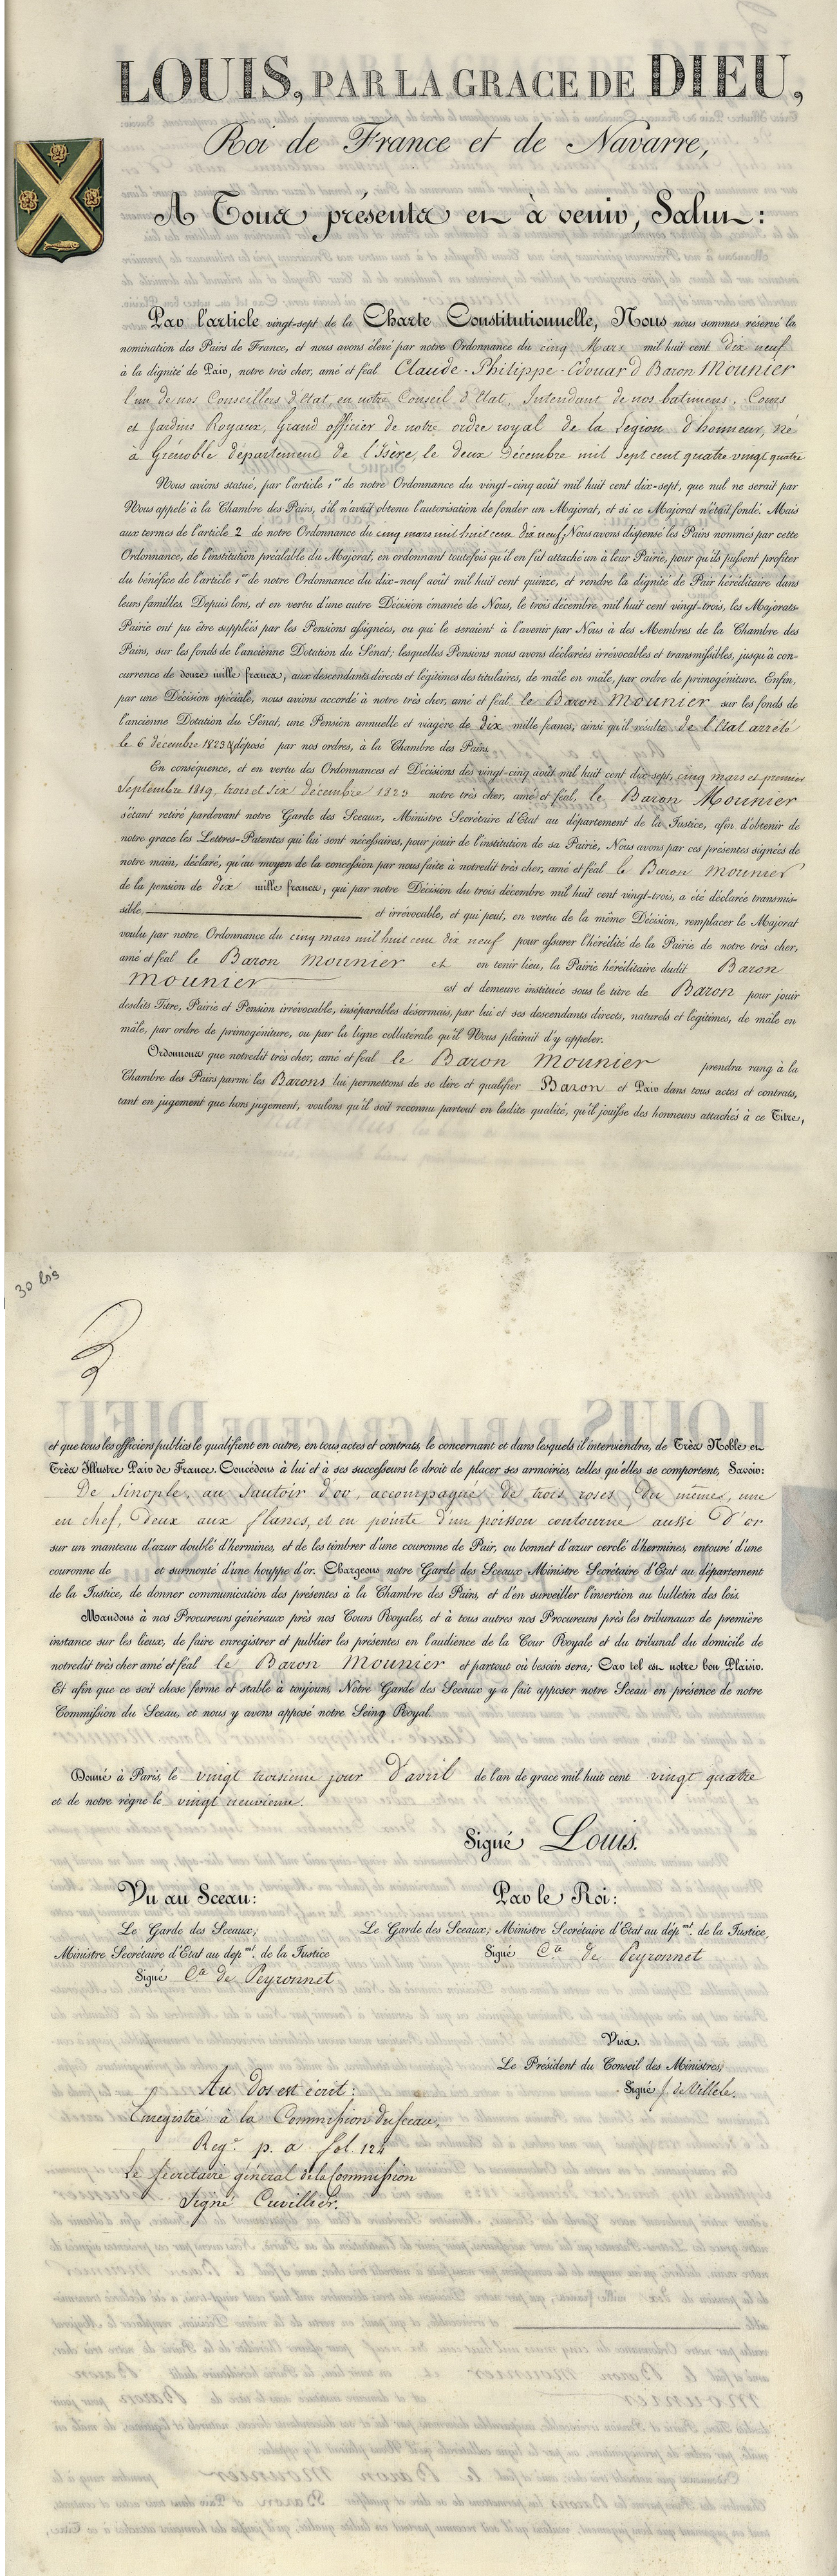 LOUIS, PAR LA GRACE DE DIEU,
Roi de France et de Navarre,
A Tous présents et à venir, Salut :
Par l'article vingt-sept de la Charte Constitutionnelle, Nous nous sommes réservé la
nomination des Pairs de France, et nous avons élevé par notre Ordonnance du cinq Mars mil huit cent dix neuf
à la dignité de Pair, notre très cher, amé et féal Claude-Philippe-Edouard Baron Mounier
l'un de nos Conseillers d'Etat, en notre Conseil d'Etat, Intendant de nos batimens, Cours
et Jardins Royaux, Grand officier de notre ordre royal de la Légion d'honneur, né
à Grénoble département de l'Isère, le deux Décembre mil sept cent quatre vingt quatre
Nous avions statué, par l'article 1er de notre Ordonnance du vingt-cinq août mil huit cent dix-sept, que nul ne serait par
Nous appelé à la Chambre des Pairs, s'il n'avait obtenu l'autorisation de fonder un Majorat, et si ce Majorat n'était fondé. Mais
aux termes de l'article 2 de notre Ordonnance du cinq mars mil huit cent dix neuf, Nous avons dispensé les Pairs nommés par cette
Ordonnance, de l'institution préalable du Majorat, en ordonnant toutefois qu'il en fût attaché un à leur Pairie, pour qu'ils pussent profiter
du bénéfice de l'article 1er de notre Ordonnance du dix-neuf août mil huit cent quinze, et rendre la dignité de Pair héréditaire dans
leurs familles. Depuis lors, et en vertu d'une autre Décision émanée de Nous, le trois décembre mil huit cent vingt-trois, les Majorats-
Pairie ont pu être suppléés par les Pensions assignées, ou qui le seraient à l'avenir par Nous à des Membres de la Chambre des
Pairs, sur les fonds de l'ancienne Dotation du Sénat; lesquelles Pensions nous avons déclarées irrévocables et transmissibles, jusqu'à con-
currence de douze mille francs, aux descendants directs et légitimes des titulaires, de mâle en mâle, par ordre de primogéniture. Enfin,
par une Décision spéciale, nous avions accordé à notre très cher, amé et féal le Baron Mounier sur les fonds de
l'ancienne Dotation du Sénat, une Pension annuelle et viagère de dix mille francs, ainsi qu'il résulte de l'Etat arrêté
le 6 décembre 1823 & déposé par nos ordres, à la Chambre des Pairs.
En conséquence, et en vertu des Ordonnances et Décisions des vingt-cinq août mil huit cent dix-sept, cinq mars et premier
Septembre 1819, trois et six décembre 1823 notre très cher, amé et féal, le Baron Mounier
s'étant retiré pardevant notre Garde des Sceaux, Ministre Secrétaire d'Etat au département de la Justice, afin d'obtenir de
notre grace les Lettres-Patentes qui lui sont nécessaires, pour jouir de l'institution de sa Pairie, Nous avons par ces présentes signées de
notre main, déclaré, qu'au moyen de la concession par nous faite à notredit très cher, amé et féal le Baron Mounier
de la pension de dix mille francs, qui par notre Décision du trois décembre mil huit cent vingt-trois, a été déclarée transmis-
sible et irrévocable, et qui peut, en vertu de la même Décision, remplacer le Majorat
voulu par notre Ordonnance du cinq mars mil huit cent dix neuf pour assurer l'hérédité de la Pairie de notre très cher,
amé et féal le Baron Mounier et en tenir lieu, la Pairie héréditaire dudit Baron
Mounier est et demeure instituée sous le titre de Baron pour jouir
desdits Titre, Pairie et Pension irrévocable, inséparables désormais, par lui et ses descendants directs, naturels et légitimes, de mâle en
mâle, par ordre de primogéniture, ou par la ligne collatérale qu'il Nous plairait d'y appeler.
Ordonnons que notredit très cher, amé et féal le Baron Mounier prendra rang à la
Chambre des Pairs parmi les Barons lui permettons de se dire et qualifier Baron et Pair dans tous actes et contrats,
tant en jugement que hors jugement, voulons qu'il soit reconnu partout en ladite qualité, qu'il jouisse des honneurs attachés à ce Titre,
30 bis
et que tous les officiers publics le qualifient en outre, en tous actes et contrats, le concernant et dans lesquels il interviendra, de Très Noble et
Très Illustre Pair de France. Concédons à lui et à ses successeurs le droit de placer ses armoiries, telles qu'elles se comportent, Savoir:
De sinople, au sautoir d'or, accompagné de trois roses, du même, une
en chef, deux aux flancs, et en pointe d'un poisson contourné aussi d'or
sur un manteau d'azur doublé d'hermines, et de les timbrer d'une couronne de Pair, ou bonnet d'azur cerclé d'hermines, entouré d'une
couronne de et surmonté d'une houppe d'or. Chargeons notre Garde des Sceaux Ministre Secrétaire d'Etat au département
de la Justice, de donner communication des présentes à la Chambre des Pairs, et d'en surveiller l'insertion au bulletin des lois.
Mandons à nos Procureurs généraux près nos Cours Royales, et à tous autres nos Procureurs près les tribunaux de première
instance sur les lieux, de faire enregistrer et publier les présentes en l'audience de la Cour Royale et du tribunal du domicile de
notredit très cher amé et féal le Baron Mounier et partout où besoin sera; Car tel est notre bon Plaisir.
Et afin que ce soit chose ferme et stable à toujours, Notre Garde des Sceaux y a fait apposer notre Sceau en présence de notre
Commission du Sceau, et nous y avons apposé notre Seing Royal.
Donné à Paris, le vingt troisieme jour d'avril de l'an de grace mil huit cent vingt quatre
et de notre règne le vingt neuvieme.
Signé Louis.
Vu au Sceau: Par le Roi:
Le Garde des Sceaux, Le Garde des Sceaux, Ministre Secrétaire d'Etat au dépmt. de la Justice,
Ministre Secrétaire d'Etat au depmt. de la Justice Signé Cte de Peyronnet
Signé Cte de Peyronnet
Visa.
Le Président du Conseil des Ministres,
Signé J. de Villele.
Au dos est écrit :
Enregistré à la Commission du sceau,
Regre p. a fol. 124
Le secrétaire général de la Commission
Signé Cuvillier.